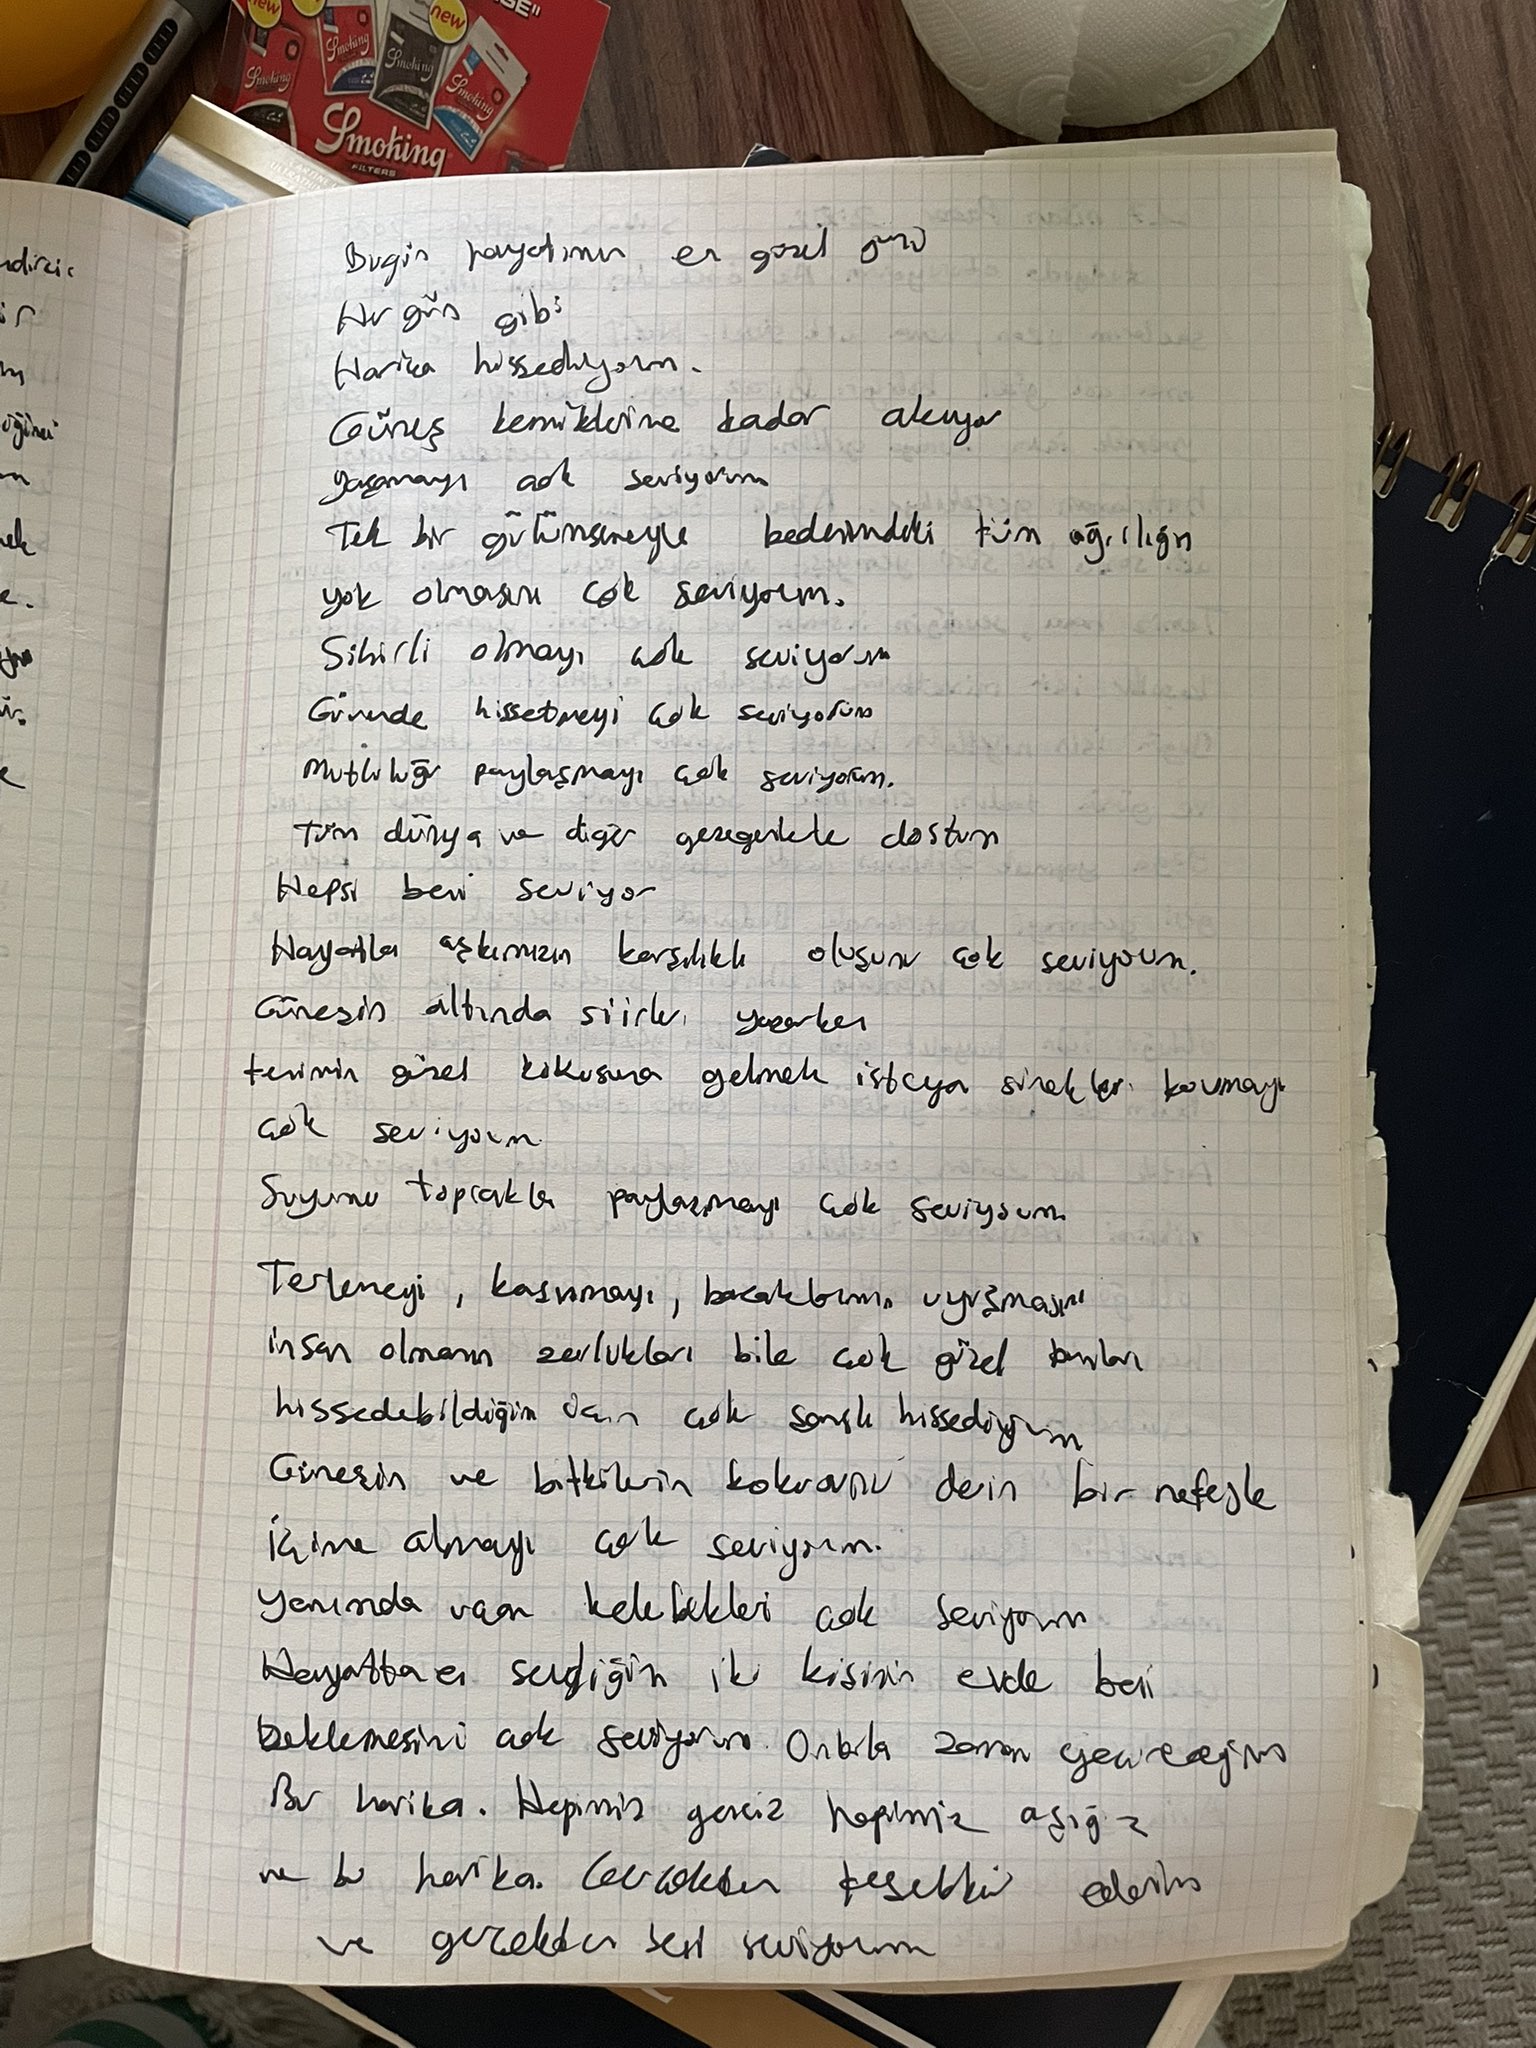 new
new
Smoking
Smoking
Smoking
Smoking
Smoking
FILTERS
Bugün hayatımın en güzel günü
Her gün gibi
Harika hissediyorum.
Güneş kemiklerime kadar akıyor
yaşamayı çok seviyorum
Tek bir gülümsemeyle bedenimdeki tüm ağırlığın
yok olmasını çok seviyorum.
Sihirli olmayı çok seviyorum
Güvende hissetmeyi çok seviyorum
Mutluluğu paylaşmayı çok seviyorum.
Tüm dünya ve diğer gezegenlerle dostum
Hepsi beni seviyor
Hayatla aşkımızın karşılıklı oluşunu çok seviyorum.
Güneşin altında şiirler yazarken
terimin güzel kokusuna gelmek isteyen sinekleri kovmayı
çok seviyorum
Suyumu toprakla paylaşmayı çok seviyorum
Terlemeyi, kaşınmayı, bacaklarımın uyuşmasını
insan olmanın zorlukları bile çok güzel bunları
hissedebildiğim için çok şanslı hissediyorum
Güneşin ve bitkilerin kokusunu derin bir nefesle
içime almayı çok seviyorum.
Yanımda uçan kelebekleri çok seviyorum
Hayatta en sevdiğim iki kişinin evde beni
beklemesini çok seviyorum. Onlarla zaman geçireceğim
Bu harika. Hepimiz genciz hepimiz aşığız
ve bu harika. Gerçekten teşekkür ederim
ve gerçekten seni seviyorum